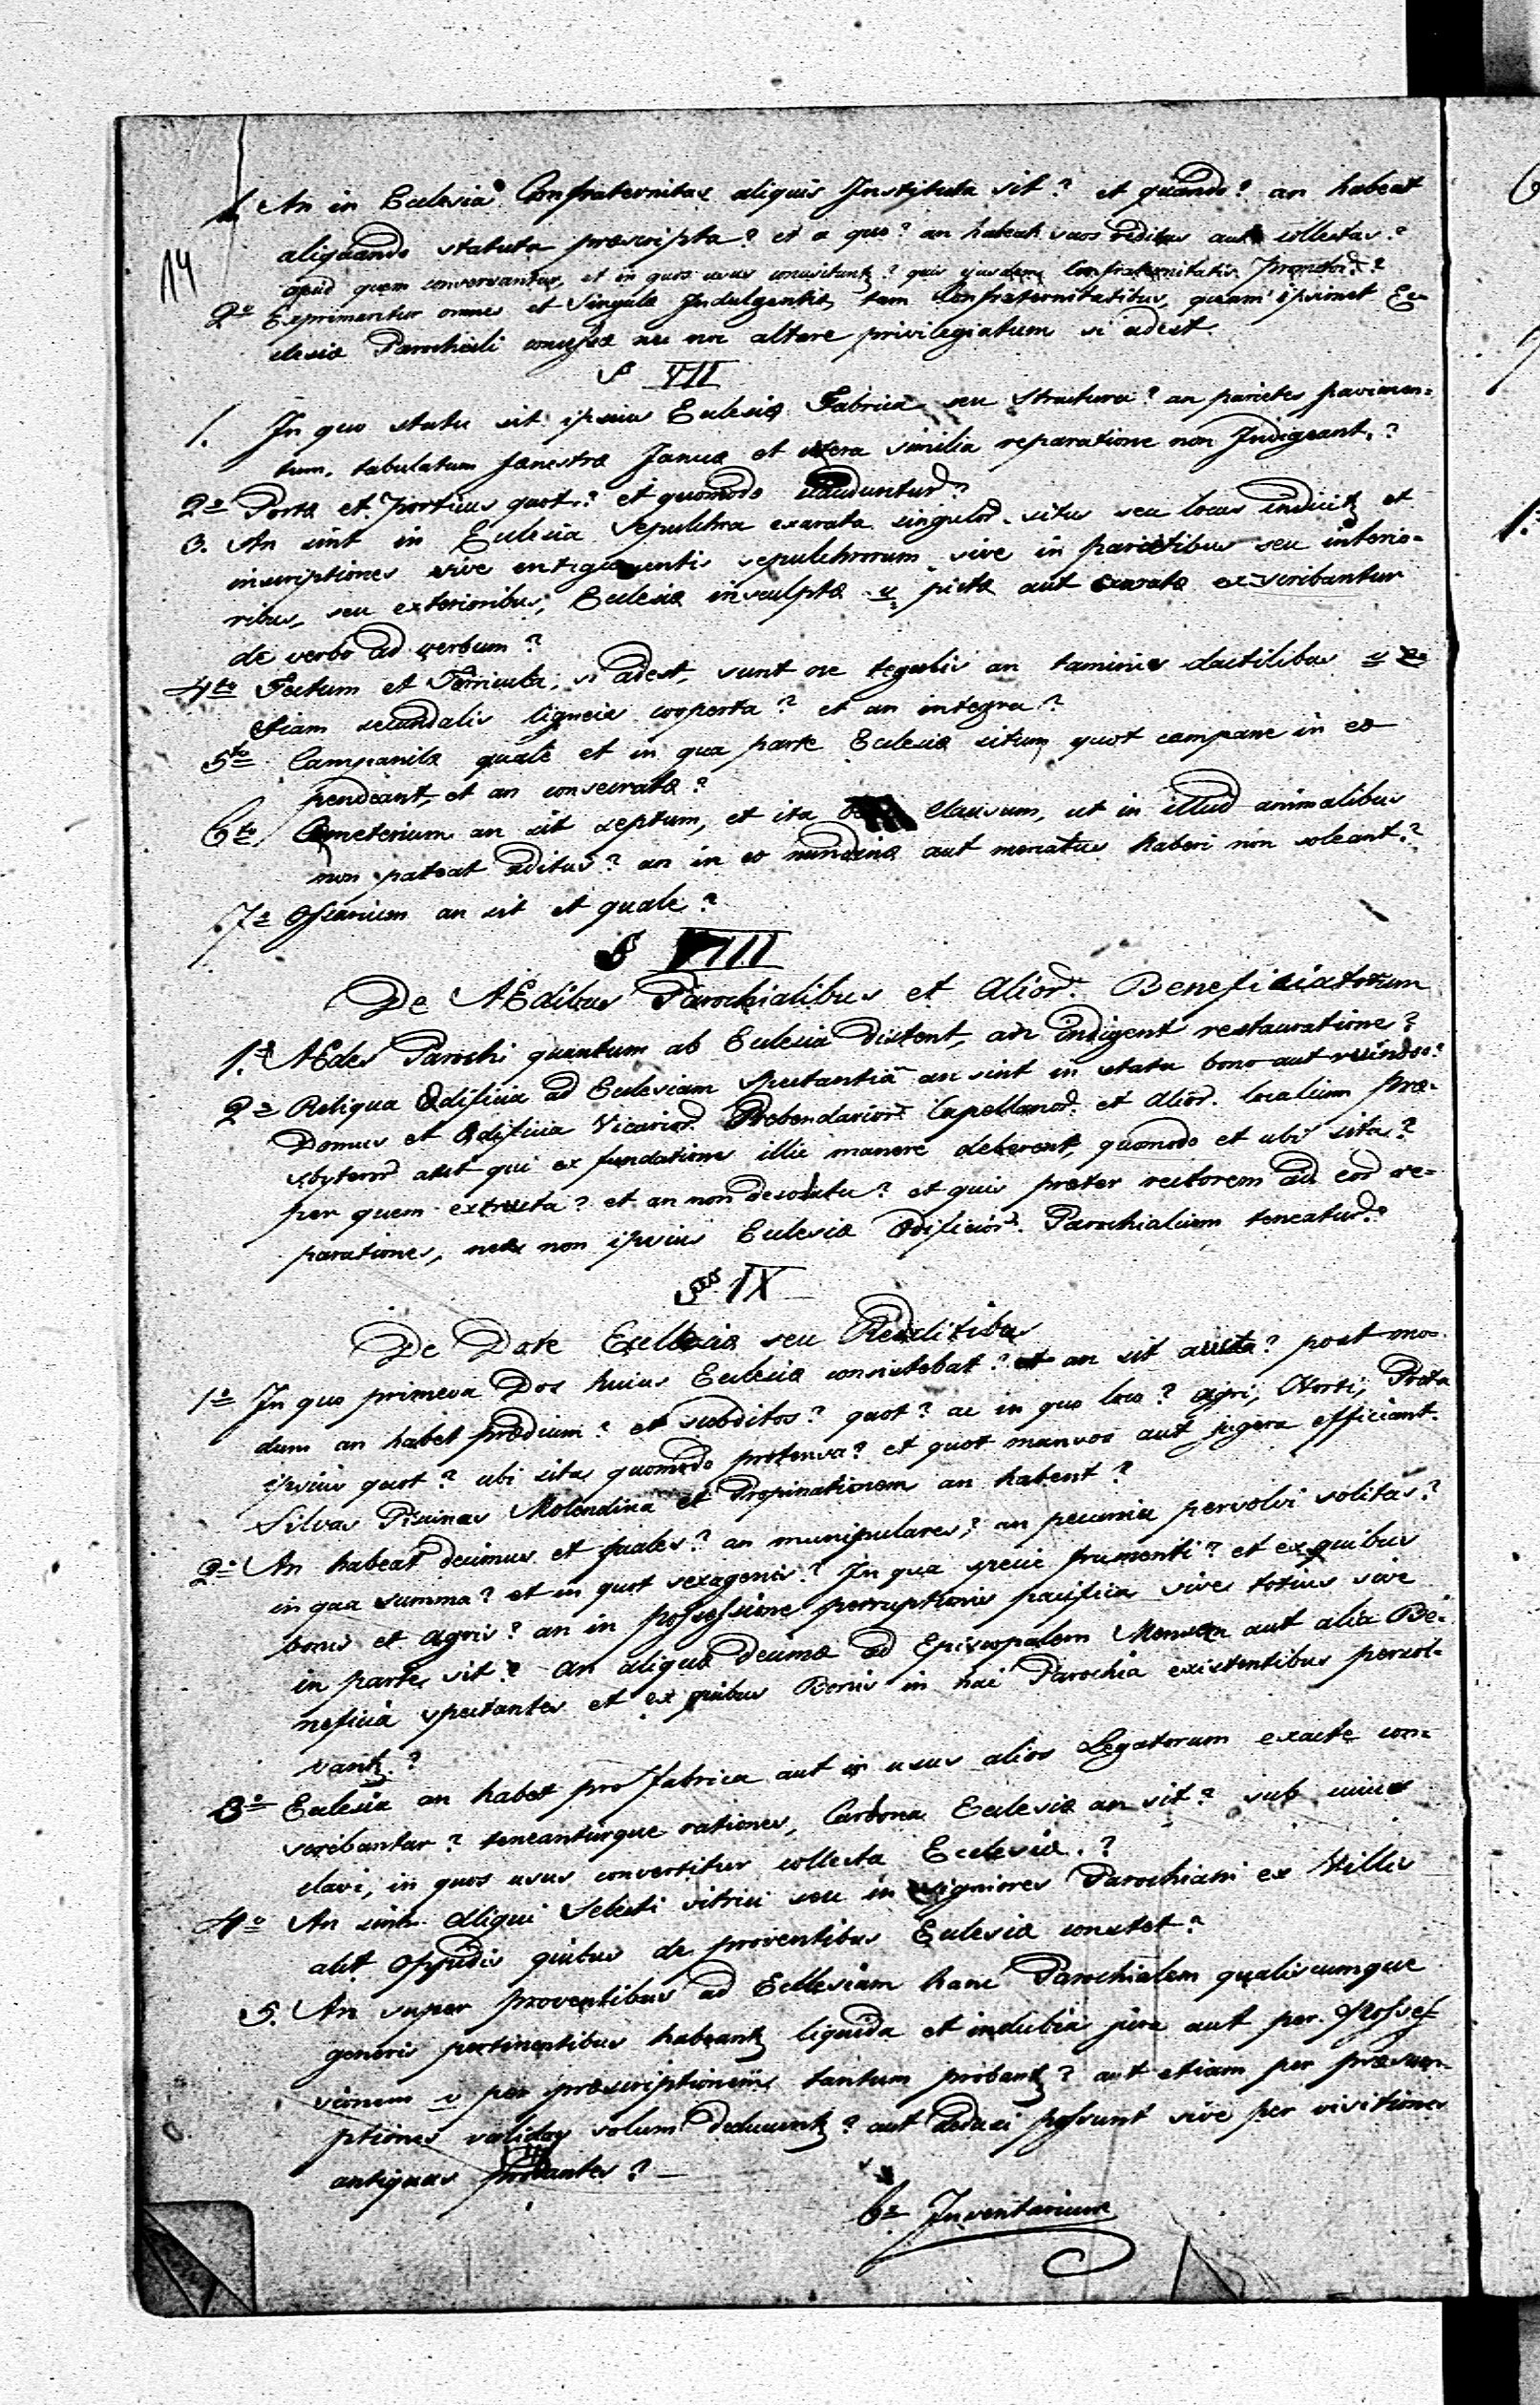 1. An in Ecclesia Confraternitas aliquis Instituta sit? et quando? an habeat
aliquando statuta præscripta? et a quo? an habeat suos reditus aut collectas?
14
apud quem conservantur, et in quos usus convertuntz? quis ejusdem Confraternitatis Promotor?
2o Exprimantur omnes et singulæ Indulgentiæ tam Confraternitatibus, quam ipsimet Ec=
clesiæ Parochiali concessæ nec non altare privilegiatum si adest.
§ VII
1. In quo statu sit ipsius Ecclesiæ Fabrica seu structura? an parietes pavimen=
tum, tabulatum fenestræ Januæ et cetera similia reparatione non Indigeant?
2o Portæ et Porticus quot? et quomodo clauduntur?
3. An sint in Ecclesia Sepulchra exarata singulor. situs seu locus indicitz et
inscriptiones sive sepulchrorum sive in parietibus seu interio=
ribus, seu exterioribus, Ecclesiæ insculptæ v. pictæ aut exaratæ ex-scribantur
de verbo ad verbum?
4to Tectum et Turricula, si adest, sunt ne tegulis an laminis
etiam scandalis ligneis cooperta? et an integra?
5to Campanile quale et in qua parte Ecclesiæ situm, quot campanæ in eo
pendeant, et an consecratæ?
6to Cemeterium an sit septum, et ita clausum, ut in illud animalibus
non pateat aditus? an in eo nundinæ aut mercatus haberi non soleant?
7o Ossarium an sit et quale?
§ VIII
De AEdibus Parochialibus et Alior. Beneficiatorum
1o AEdes Parochi quantum ab Ecclesia distent, an indigent restauratione?
2o Reliqua Ædificia ad Ecclesiam spectantia an sint in statu bono aut ruinoso?
Domus et Ædificia Vicarior. Prebendarior. Capellanor. et Alior. localium Præ=
sbyteror aut qui ex fundatione illic manere deberent, quomodo et ubi sita?
per quem extructa? et an non desolata? et quis præter rectorem ad eor re=
parationes, nec non ipsius Ecclesiæ Ædificior. Parochialium teneatur?
§ IX
De Dote Ecclesiæ seu Redditibus
1o In quo primeva Dos huius Ecclesiæ consistebat? et an sit aucta? post mo=
dum an habet prædium? et subditos? quot? ac in quo loco? agri, Horti, Prata
ipsius quot? ubi sita, quomodo protensa? et quot mansos aut jugera efficiant.
Silvas Piscinas Molendina et Propinationem an habent?
2o An habeat decimas et quales? an manipulares? an pecunia persolvi solitas?
in qua summa? et in quot sexagenis? In qua specie frumenti? et ex quibus
bonis et agris? an in possessione perceptionis pacifica sive totius sive
in parte sit? An aliquæ decimæ ad Episcopalem Mensam aut alia Be=
neficia spectantes et ex quibus Bonis in hac Parochia existentibus persol=
vantz?
3o Ecclesia an habet pro fabrica aut in usus alios Legatorum exacte con=
scribantur? teneanturque rationes, Carbona Ecclesiæ an sit? sub cuius
clavi, in quos usus convertitur collecta Ecclesiæ?
4o An sint Aliqui Selecti vitrici seu in signiores Parochiani ex Villis
aut Oppidis quibus de proventibus Ecclesiæ constet?
5. An super proventibus ad Ecclesiam hanc Parochialem qualiscumque
generis pertinentibus habeantz liquida et indubia jura aut per Posses=
sionem v per præscriptionem tantum probantz? aut etiam per præsum=
ptiones validas solum deducuntz? aut deduci possunt sive per visitiones
antiquas probantes? —
6o Inventarium